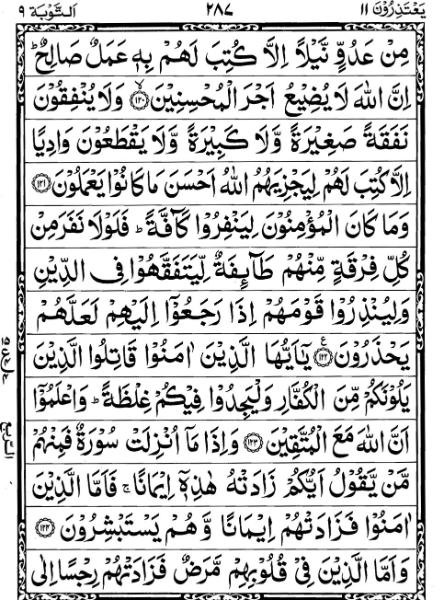 يَعْتَذِرُوْنَ ١١ ٢٨٧ اَلتَّوْبَة ٩
مِنْ عَدُوٍّ نَّيْلًا اِلَّا كُتِبَ لَهُمْ بِهٖ عَمَلٌ صَالِحٌ ؕ
اِنَّ اللّٰهَ لَا يُضِيْعُ اَجْرَ الْمُحْسِنِيْنَ ۙ‏﴿١٢٠﴾ وَلَا يُنْفِقُوْنَ
نَفَقَةً صَغِيْرَةً وَّلَا كَبِيْرَةً وَّلَا يَقْطَعُوْنَ وَادِيًا
اِلَّا كُتِبَ لَهُمْ لِيَجْزِيَهُمُ اللّٰهُ اَحْسَنَ مَا كَانُوْا يَعْمَلُوْنَ ﴿١٢١﴾
وَمَا كَانَ الْمُؤْمِنُوْنَ لِيَنْفِرُوْا كَآفَّةً ؕ فَلَوْلَا نَفَرَ مِنْ
كُلِّ فِرْقَةٍ مِّنْهُمْ طَآئِفَةٌ لِّيَتَفَقَّهُوْا فِى الدِّيْنِ
وَلِيُنْذِرُوْا قَوْمَهُمْ اِذَا رَجَعُوْۤا اِلَيْهِمْ لَعَلَّهُمْ
يَحْذَرُوْنَ ﴿١٢٢﴾ ع يٰۤاَيُّهَا الَّذِيْنَ اٰمَنُوْا قَاتِلُوا الَّذِيْنَ
يَلُوْنَكُمْ مِّنَ الْكُفَّارِ وَلْيَجِدُوْا فِيْكُمْ غِلْظَةً ؕ وَاعْلَمُوْۤا
اَنَّ اللّٰهَ مَعَ الْمُتَّقِيْنَ ﴿١٢٣﴾ وَاِذَا مَاۤ اُنْزِلَتْ سُوْرَةٌ فَمِنْهُمْ
مَّنْ يَّقُوْلُ اَيُّكُمْ زَادَتْهُ هٰذِهٖۤ اِيْمَانًا ۚ فَاَمَّا الَّذِيْنَ
اٰمَنُوْا فَزَادَتْهُمْ اِيْمَانًا وَّهُمْ يَسْتَبْشِرُوْنَ ﴿١٢٤﴾
وَاَمَّا الَّذِيْنَ فِىْ قُلُوْبِهِمْ مَّرَضٌ فَزَادَتْهُمْ رِجْسًا اِلٰى